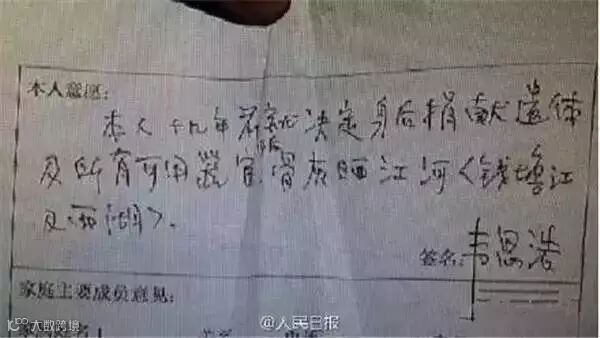 本人意愿:
本人十九年前就决定身后捐献遗体
及所有可用器官,骨灰洒江河<钱塘江
及西湖>.
签名:韦思浩
家庭主要成员意见:
@人民日报
大数跨境